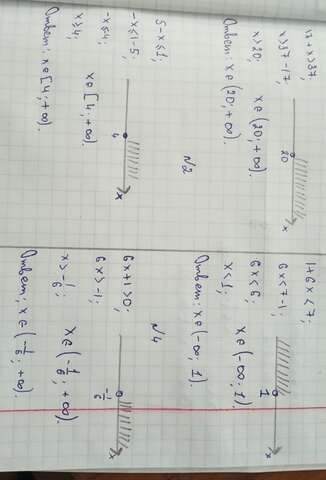 17+x>37;
x>37-17;
x>20;
x∈(20;+∞).
20
x
Ответ: x∈(20;+∞).
№2
5-x≤1;
-x≤1-5;
-x≤4;
x≥4;
x∈[4;+∞).
4
x
Ответ: x∈[4;+∞).
1+6x<7;
6x<7-1;
6x<6;
x<1;
x∈(-∞;1).
1
x
Ответ: x∈(-∞;1).
№4
6x+1>0;
6x>-1;
x>-1/6;
x∈(-1/6;+∞).
-1/6
x
Ответ: x∈(-1/6;+∞).